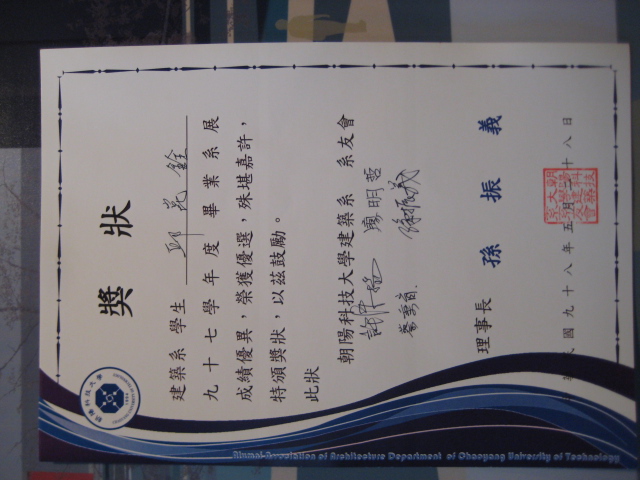 獎狀
建築系 學生 邱苑銓
九十七學年度畢業系展
成績優異，榮獲優選，殊堪嘉許，
特頒獎狀，以茲鼓勵。
此狀
朝陽科技大學建築系 系友會
廖明哲
理事長 孫振義
國九十八年五月二十八日
朝陽科技大學
Alumni-Association of Architecture Department of Chaoyang University of Technology